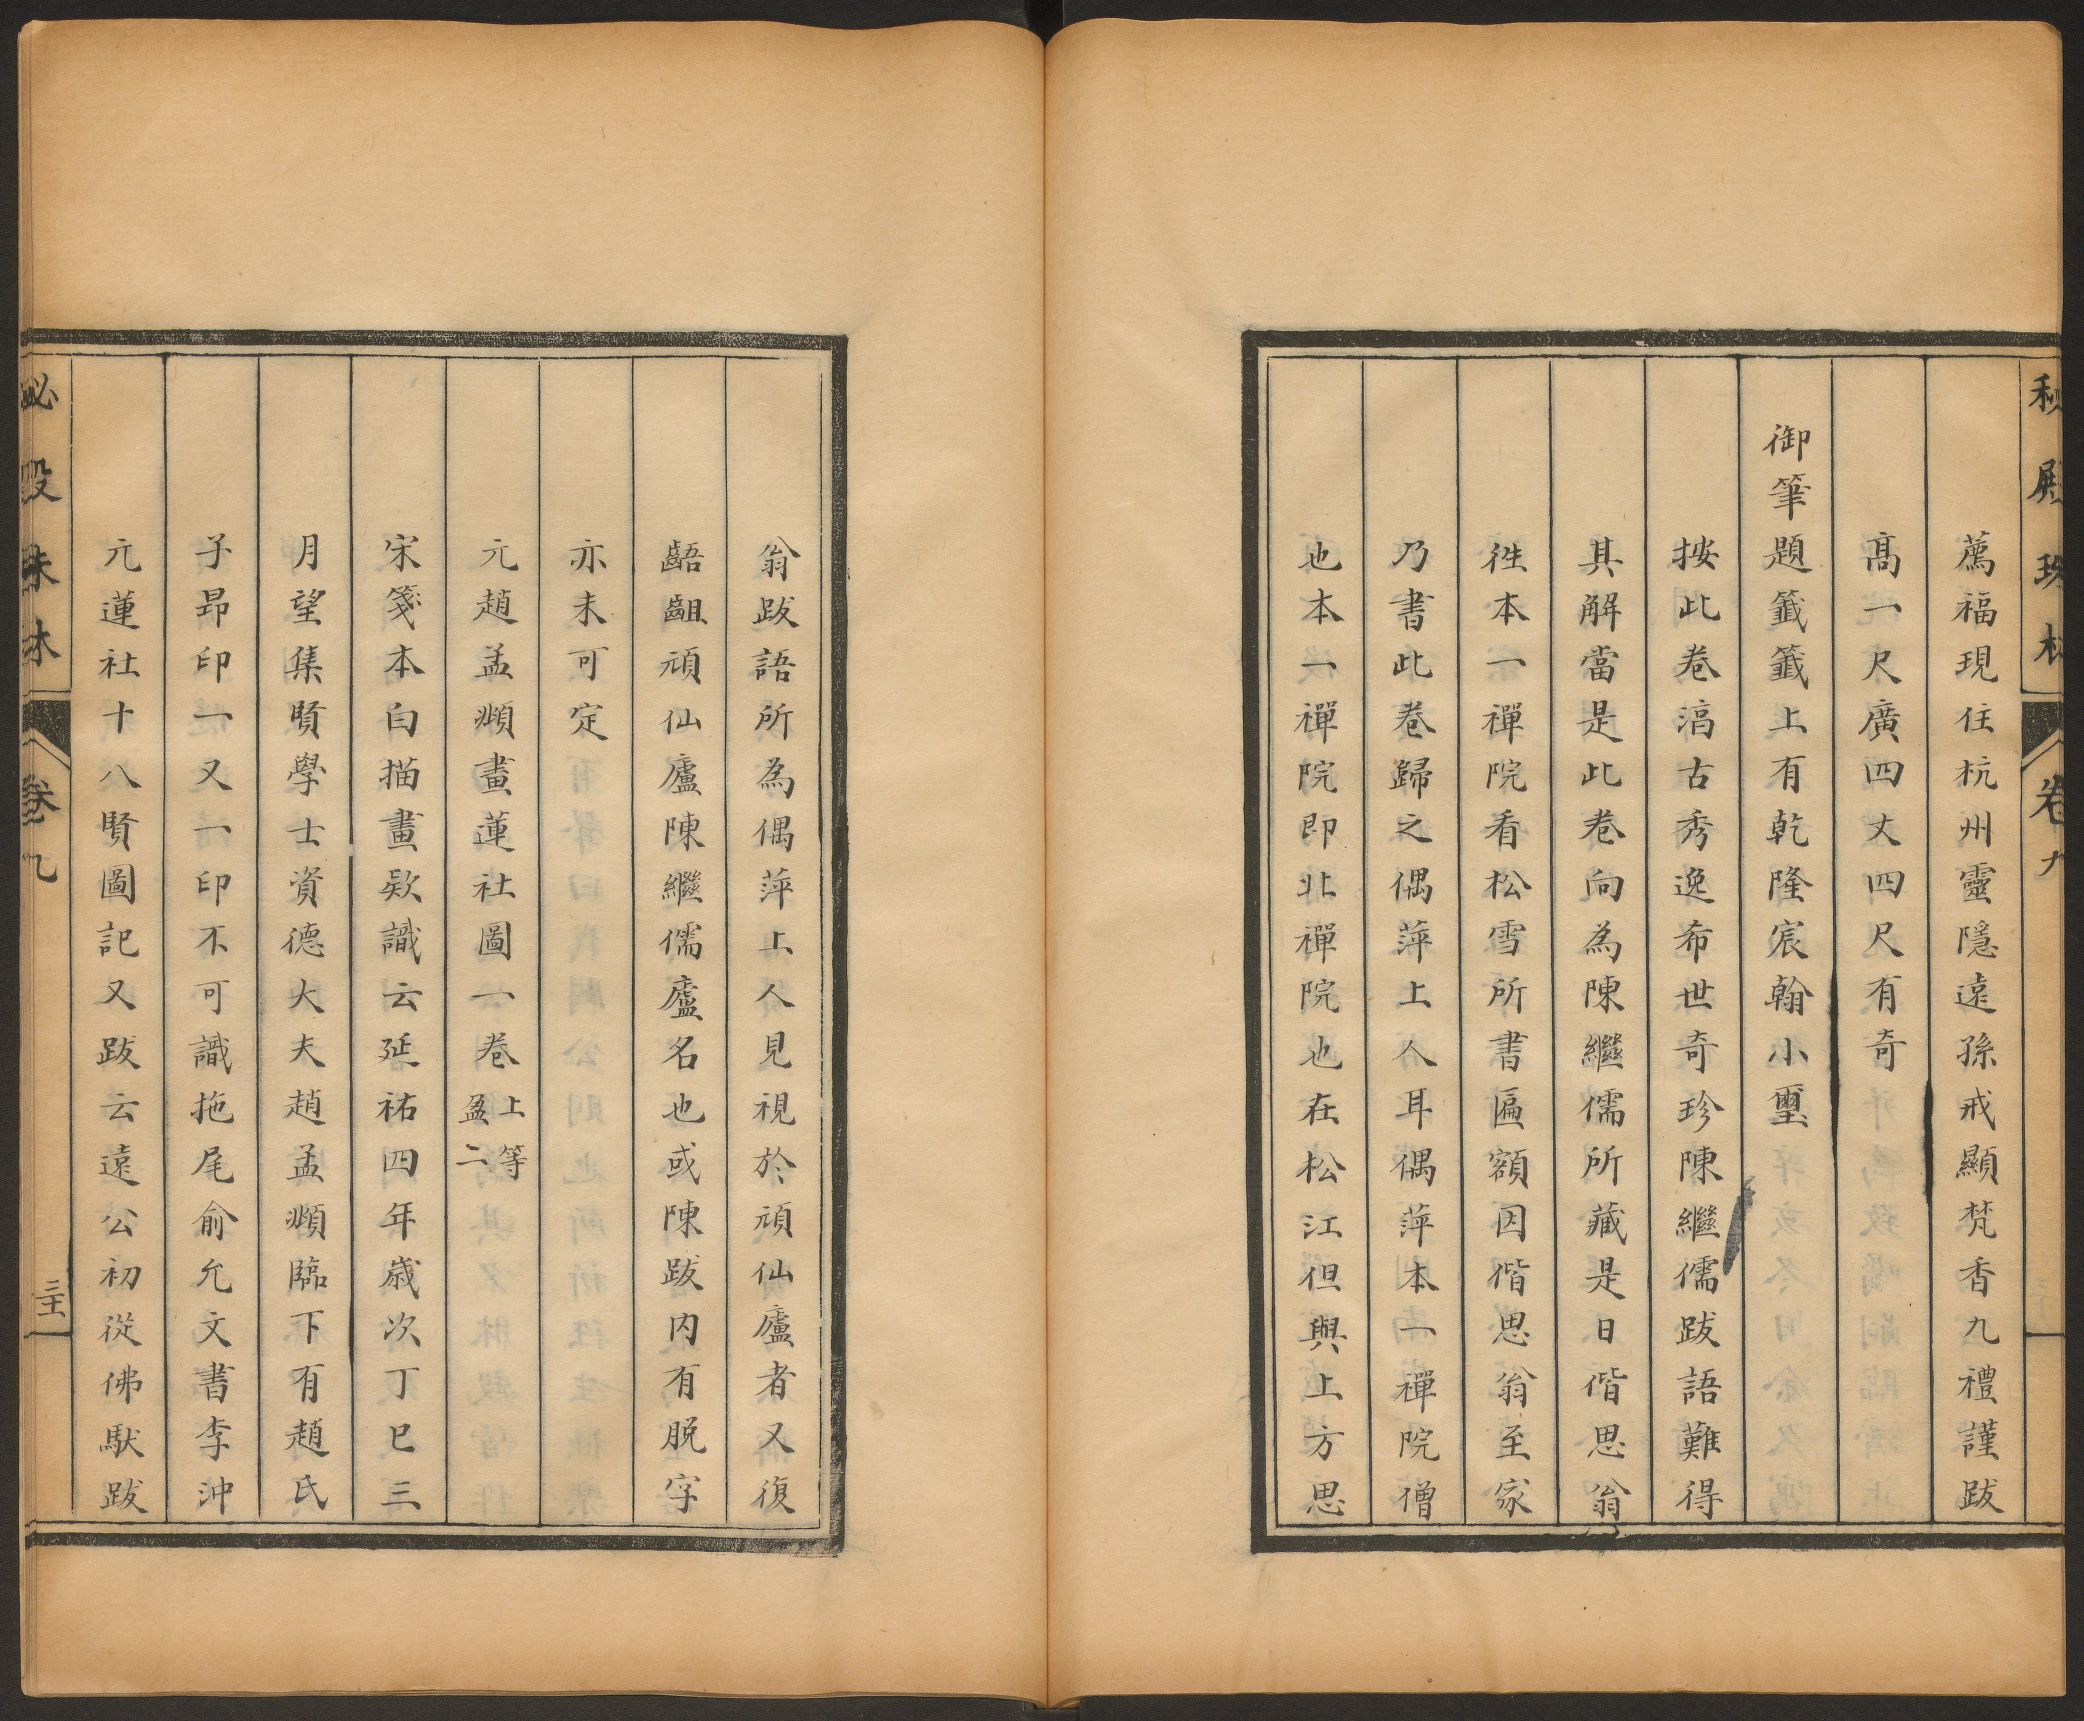 秘殿珠林 卷九
薦福現住杭州靈隱遠孫戒顯焚香九禮謹跋
高一尺廣四丈四尺有奇
御筆題籤籤上有乾隆宸翰小璽
按此卷淳古秀逸希世奇珍陳繼儒跋語難得
其解當是此卷向為陳繼儒所藏是日偕思翁
徃本一禪院看松雪所書匾額因偕思翁至家
乃書此卷歸之偶萍上人耳偶萍本一禪院僧
也本一禪院即北禪院也在松江但與上方思
翁跋語所為偶萍上人見視於頑仙廬者又復
齬齟頑仙廬陳繼儒廬名也或陳跋内有脱字
亦未可定
元趙孟頫畫蓮社圖一卷 上等 盈二
宋箋本白描畫欵識云延祐四年歲次丁巳三
月望集賢學士資德大夫趙孟頫臨下有趙氏
子昂印一又一印不可識拖尾俞允文書李沖
元蓮社十八賢圖記又跋云遠公初從佛馱跋
秘殿珠林 卷九 三十一